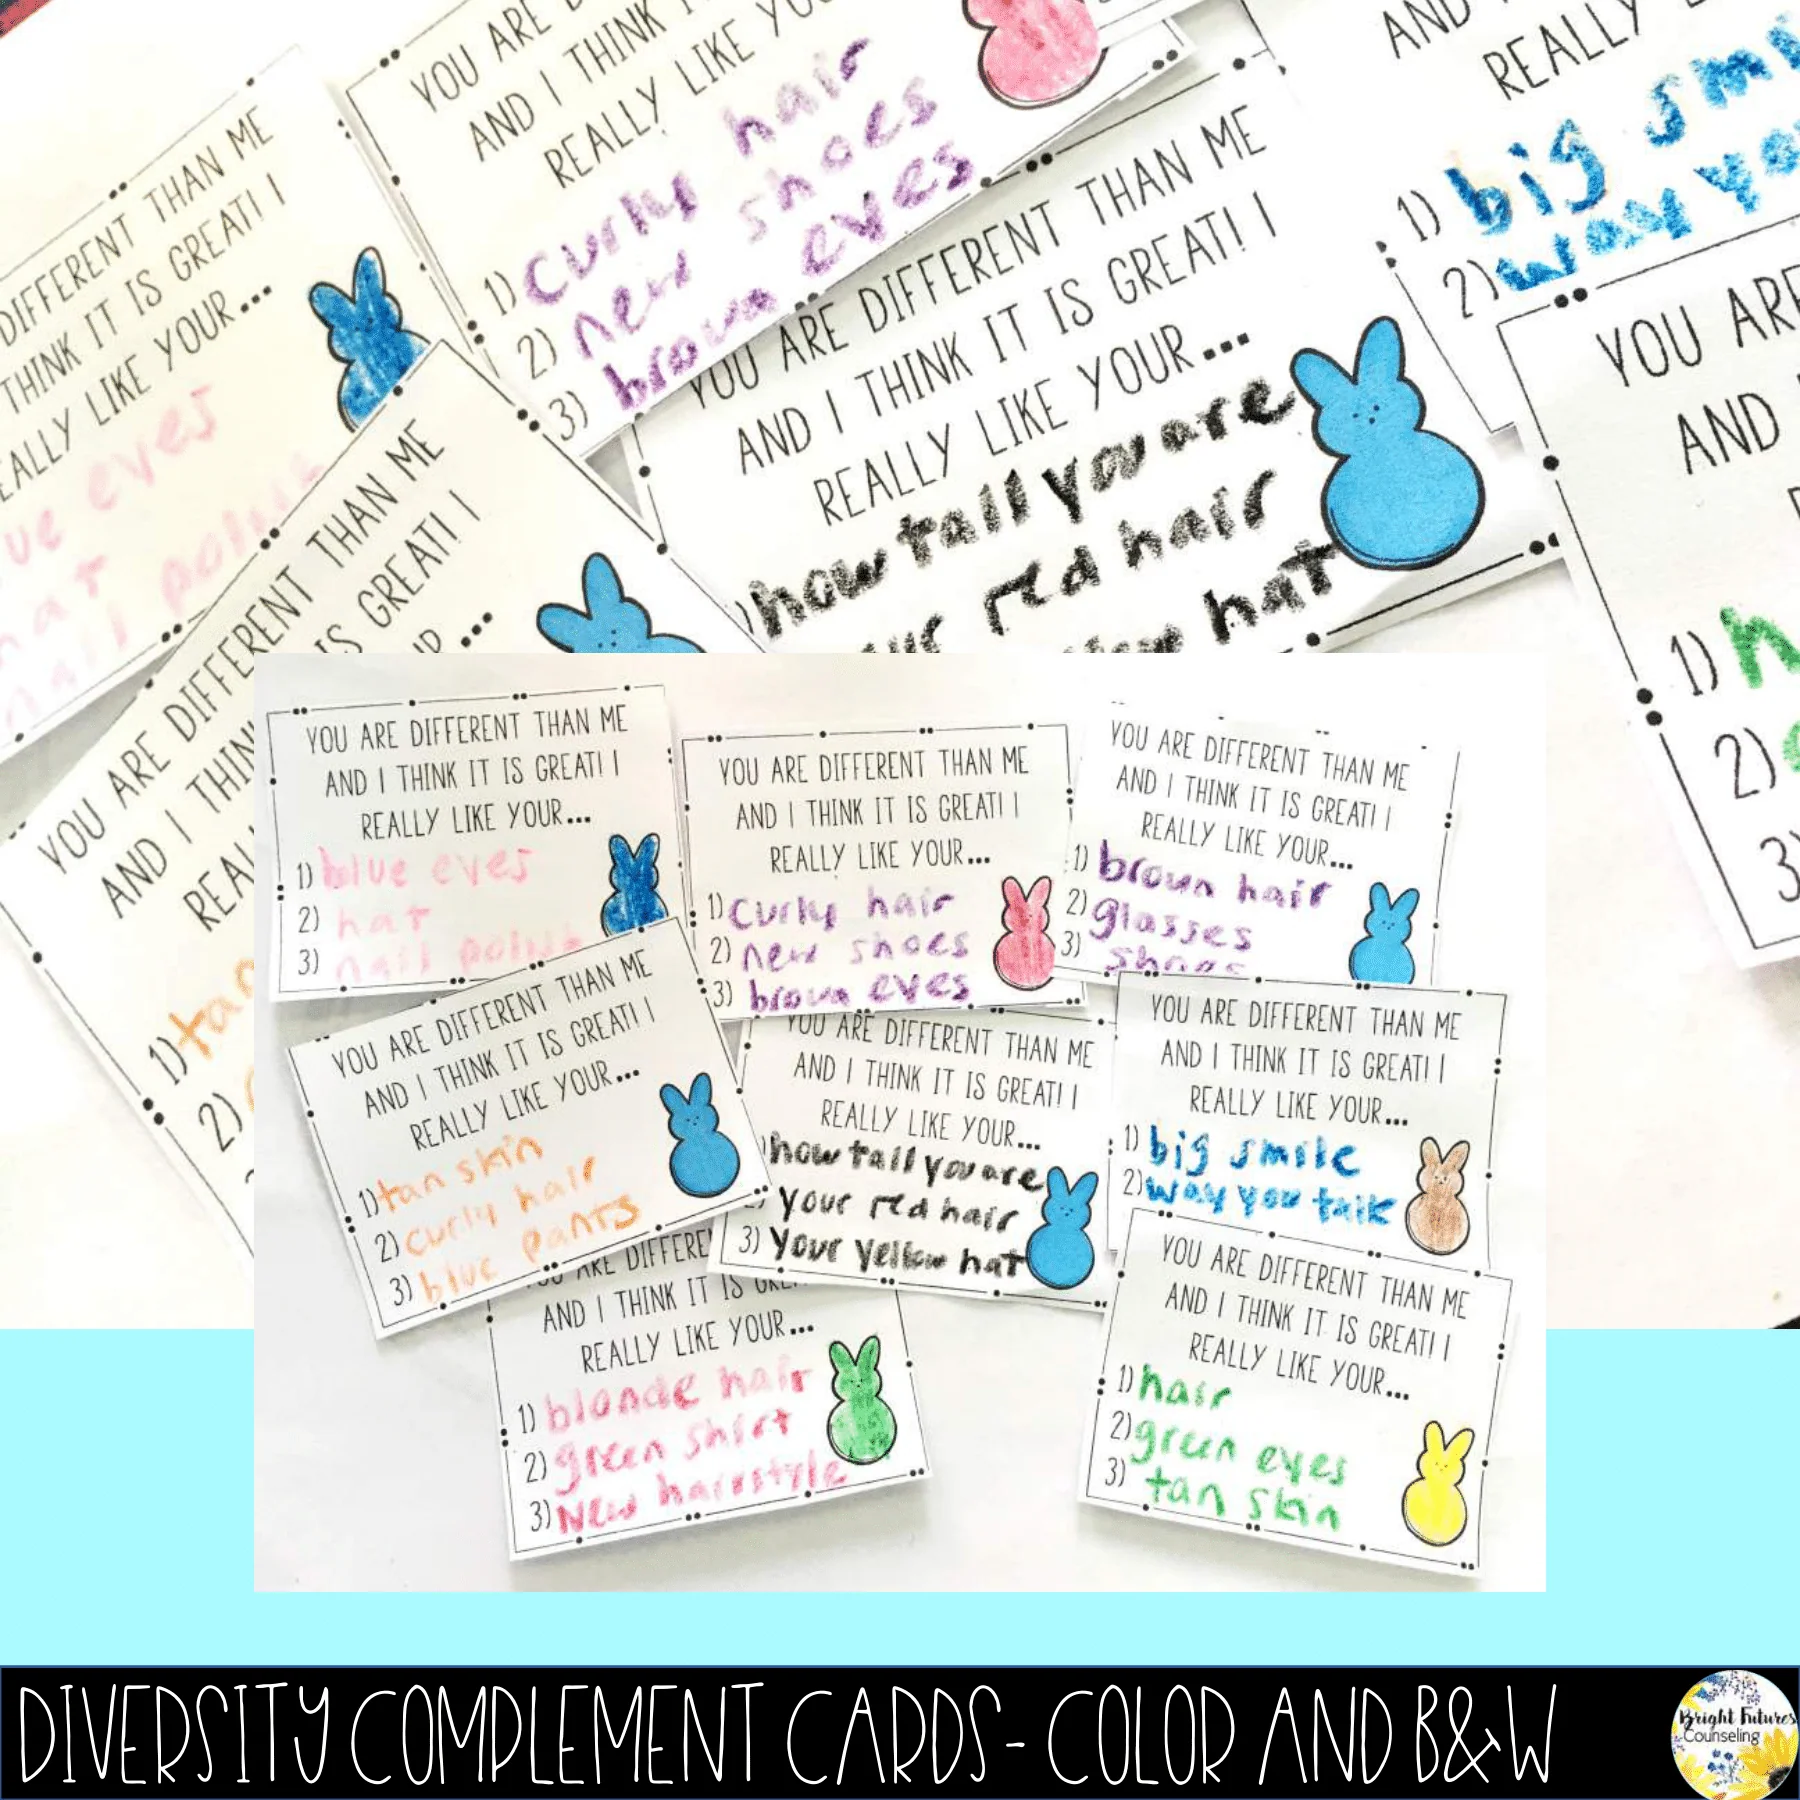 DIFFERENT THAN ME
THINK IT IS GREAT! I
REALLY LIKE YOUR...
eyes
hat
nail polish
YOU ARE
AND I THINK IT
REALLY LIKE YOU
1) curly hair
2) new shoes
3) brown eyes
AND
REALLY
1) big smi
2) way yo
YOU ARE DIFFERENT THAN ME
AND I THINK IT IS GREAT! I
REALLY LIKE YOUR...
how tall you are
ur red hair
hat
YOU ARE DIFFERENT THAN ME
AND I THIN IS GREAT! I
REAL
1) tan
2)
YOU ARE
AND
1) h
2)
3)
YOU ARE DIFFERENT THAN ME
AND I THINK IT IS GREAT! I
REALLY LIKE YOUR...
1) blue eyes
2) hat
3) nail polish
YOU ARE DIFFERENT THAN ME
AND I THINK IT IS GREAT! I
REALLY LIKE YOUR...
1) curly hair
2) new shoes
3) brown eyes
YOU ARE DIFFERENT THAN ME
AND I THINK IT IS GREAT! I
REALLY LIKE YOUR...
1) brown hair
2) glasses
3) shoes
YOU ARE DIFFERENT THAN ME
AND I THINK IT IS GREAT! I
REALLY LIKE YOUR...
1) tan skin
2) curly hair
3) blue pants
YOU ARE DIFFERENT THAN ME
AND I THINK IT IS GREAT! I
REALLY LIKE YOUR...
how tall you are
2) your red hair
3) your yellow hat
YOU ARE DIFFERENT THAN ME
AND I THINK IT IS GREAT! I
REALLY LIKE YOUR...
1) big smile
2) way you talk
YOU ARE DIFFERE
AND I THINK IT IS GREA
REALLY LIKE YOUR...
1) blonde hair
2) green shirt
3) New hairstyle
YOU ARE DIFFERENT THAN ME
AND I THINK IT IS GREAT! I
REALLY LIKE YOUR...
1) hair
2) green eyes
3) tan skin
DIVERSITY COMPLEMENT CARDS- COLOR AND B&W
Bright Futures
Counseling